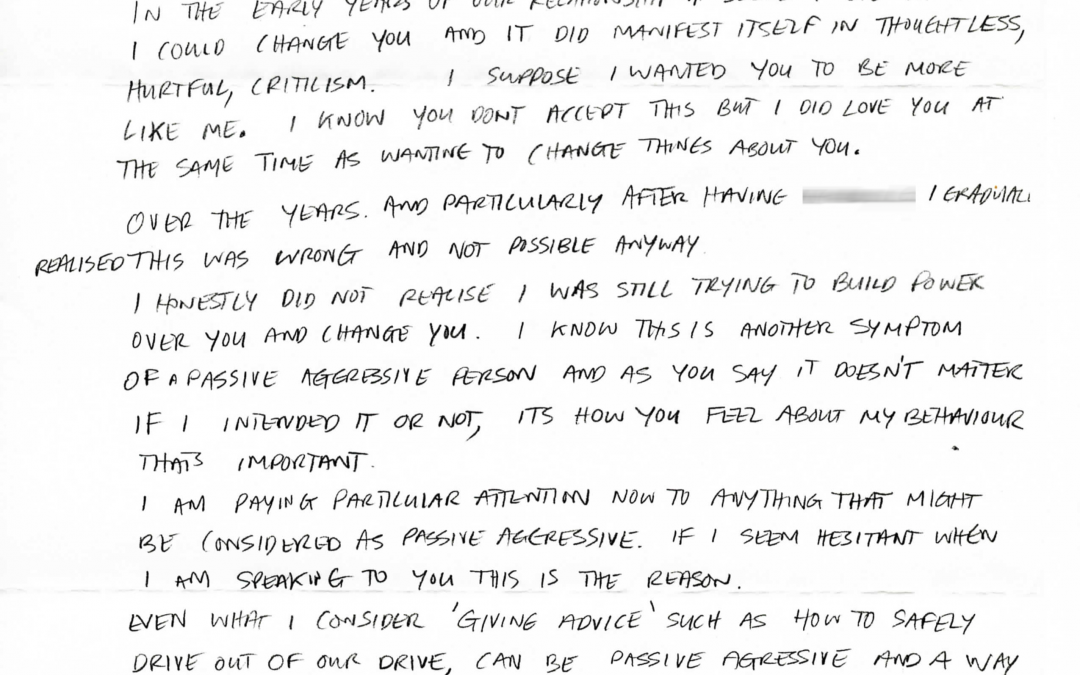 IN THE EARLY YEARS OF OUR RELATIONSHIP
I COULD CHANGE YOU AND IT DID MANIFEST ITSELF IN THOUGHTLESS,
HURTFUL, CRITICISM. I SUPPOSE I WANTED YOU TO BE MORE
LIKE ME. I KNOW YOU DONT ACCEPT THIS BUT I DID LOVE YOU AT
THE SAME TIME AS WANTING TO CHANGE THINGS ABOUT YOU.
OVER THE YEARS. AND PARTICULARLY AFTER HAVING I GRADUALL
REALISED THIS WAS WRONG AND NOT POSSIBLE ANYWAY.
I HONESTLY DID NOT REALISE I WAS STILL TRYING TO BUILD POWER
OVER YOU AND CHANGE YOU. I KNOW THIS IS ANOTHER SYMPTOM
OF A PASSIVE AGGRESSIVE PERSON AND AS YOU SAY IT DOESN'T MATTER
IF I INTENDED IT OR NOT, ITS HOW YOU FEEL ABOUT MY BEHAVIOUR
THATS IMPORTANT.
I AM PAYING PARTICULAR ATTENTION NOW TO ANYTHING THAT MIGHT
BE CONSIDERED AS PASSIVE AGGRESSIVE. IF I SEEM HESITANT WHEN
I AM SPEAKING TO YOU THIS IS THE REASON.
EVEN WHAT I CONSIDER 'GIVING ADVICE' SUCH AS HOW TO SAFELY
DRIVE OUT OF OUR DRIVE, CAN BE PASSIVE AGRESSIVE AND A WAY